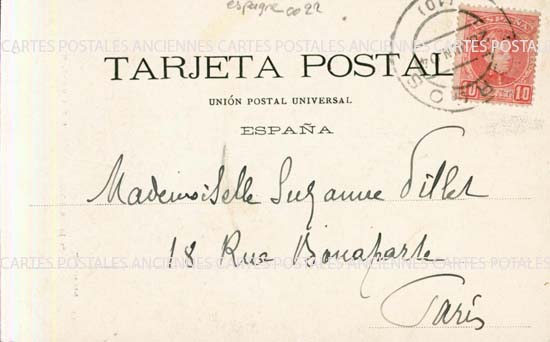 espagne 0022
TARJETA POSTAL
UNIÓN POSTAL UNIVERSAL
ESPAÑA
10 10
Mademoiselle Suzanne Pillet
18 Rue Bonaparte
Paris
CARTES POSTALES ANCIENNES CARTES POSTALES ANCIENNES CARTES POSTALES
CARTES POSTALES ANCIENNES CARTES POSTALES ANCIENNES CARTES POSTALES